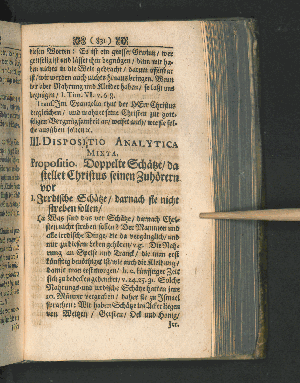 (831)
diesen Worten: Es ist ein grosser Gewinn / wer
gottselig ist und lässet ihm begnügen / denn wir ha-
ben nichts in die Welt gebracht / darum offenbar
ist / wir werden auch nichts hinaus bringen. Wenn
wir aber Nahrung und Kleider haben / so lasst uns
begnügen / 1. Tim. VI. v. 6. 8.
Im Evangelio thut der HErr Christus
dergleichen / und mahnet seine Christen zur gott-
seligen Vergnügsamkeit an /
III. DISPOSITIO ANALYTICA
MIXTA.
Propositio. Doppelte Schätze / da
stellet Christus seinen Zuhörern
vor
1. Irrdische Schätze / darnach sie nicht
streben sollen /
a. Was sind das vor Schätze / darnach Chri-
sten nicht streben sollen? Der Mammon und
alle irrdische Dinge / die da vergänglich / und
nur zu diesem Leben gehören / e. g. Die Nah-
rung an Speise und Tranck / die man erst
künfftig benöthiget ist / wie auch die Kleidung /
damit man erst morgen / b. e. künfftiger Zeit
sich zu bedecken gedencket / v. 24. 25. 31. Solche
Nahrungs- und irrdische Schätze hatten jene
10. Männer vergraben / daher sie zu Ismael
sprachen: Wir haben Schätze im Acker liegen
von Weitzen / Gersten / Oel und Honig /
Jer.